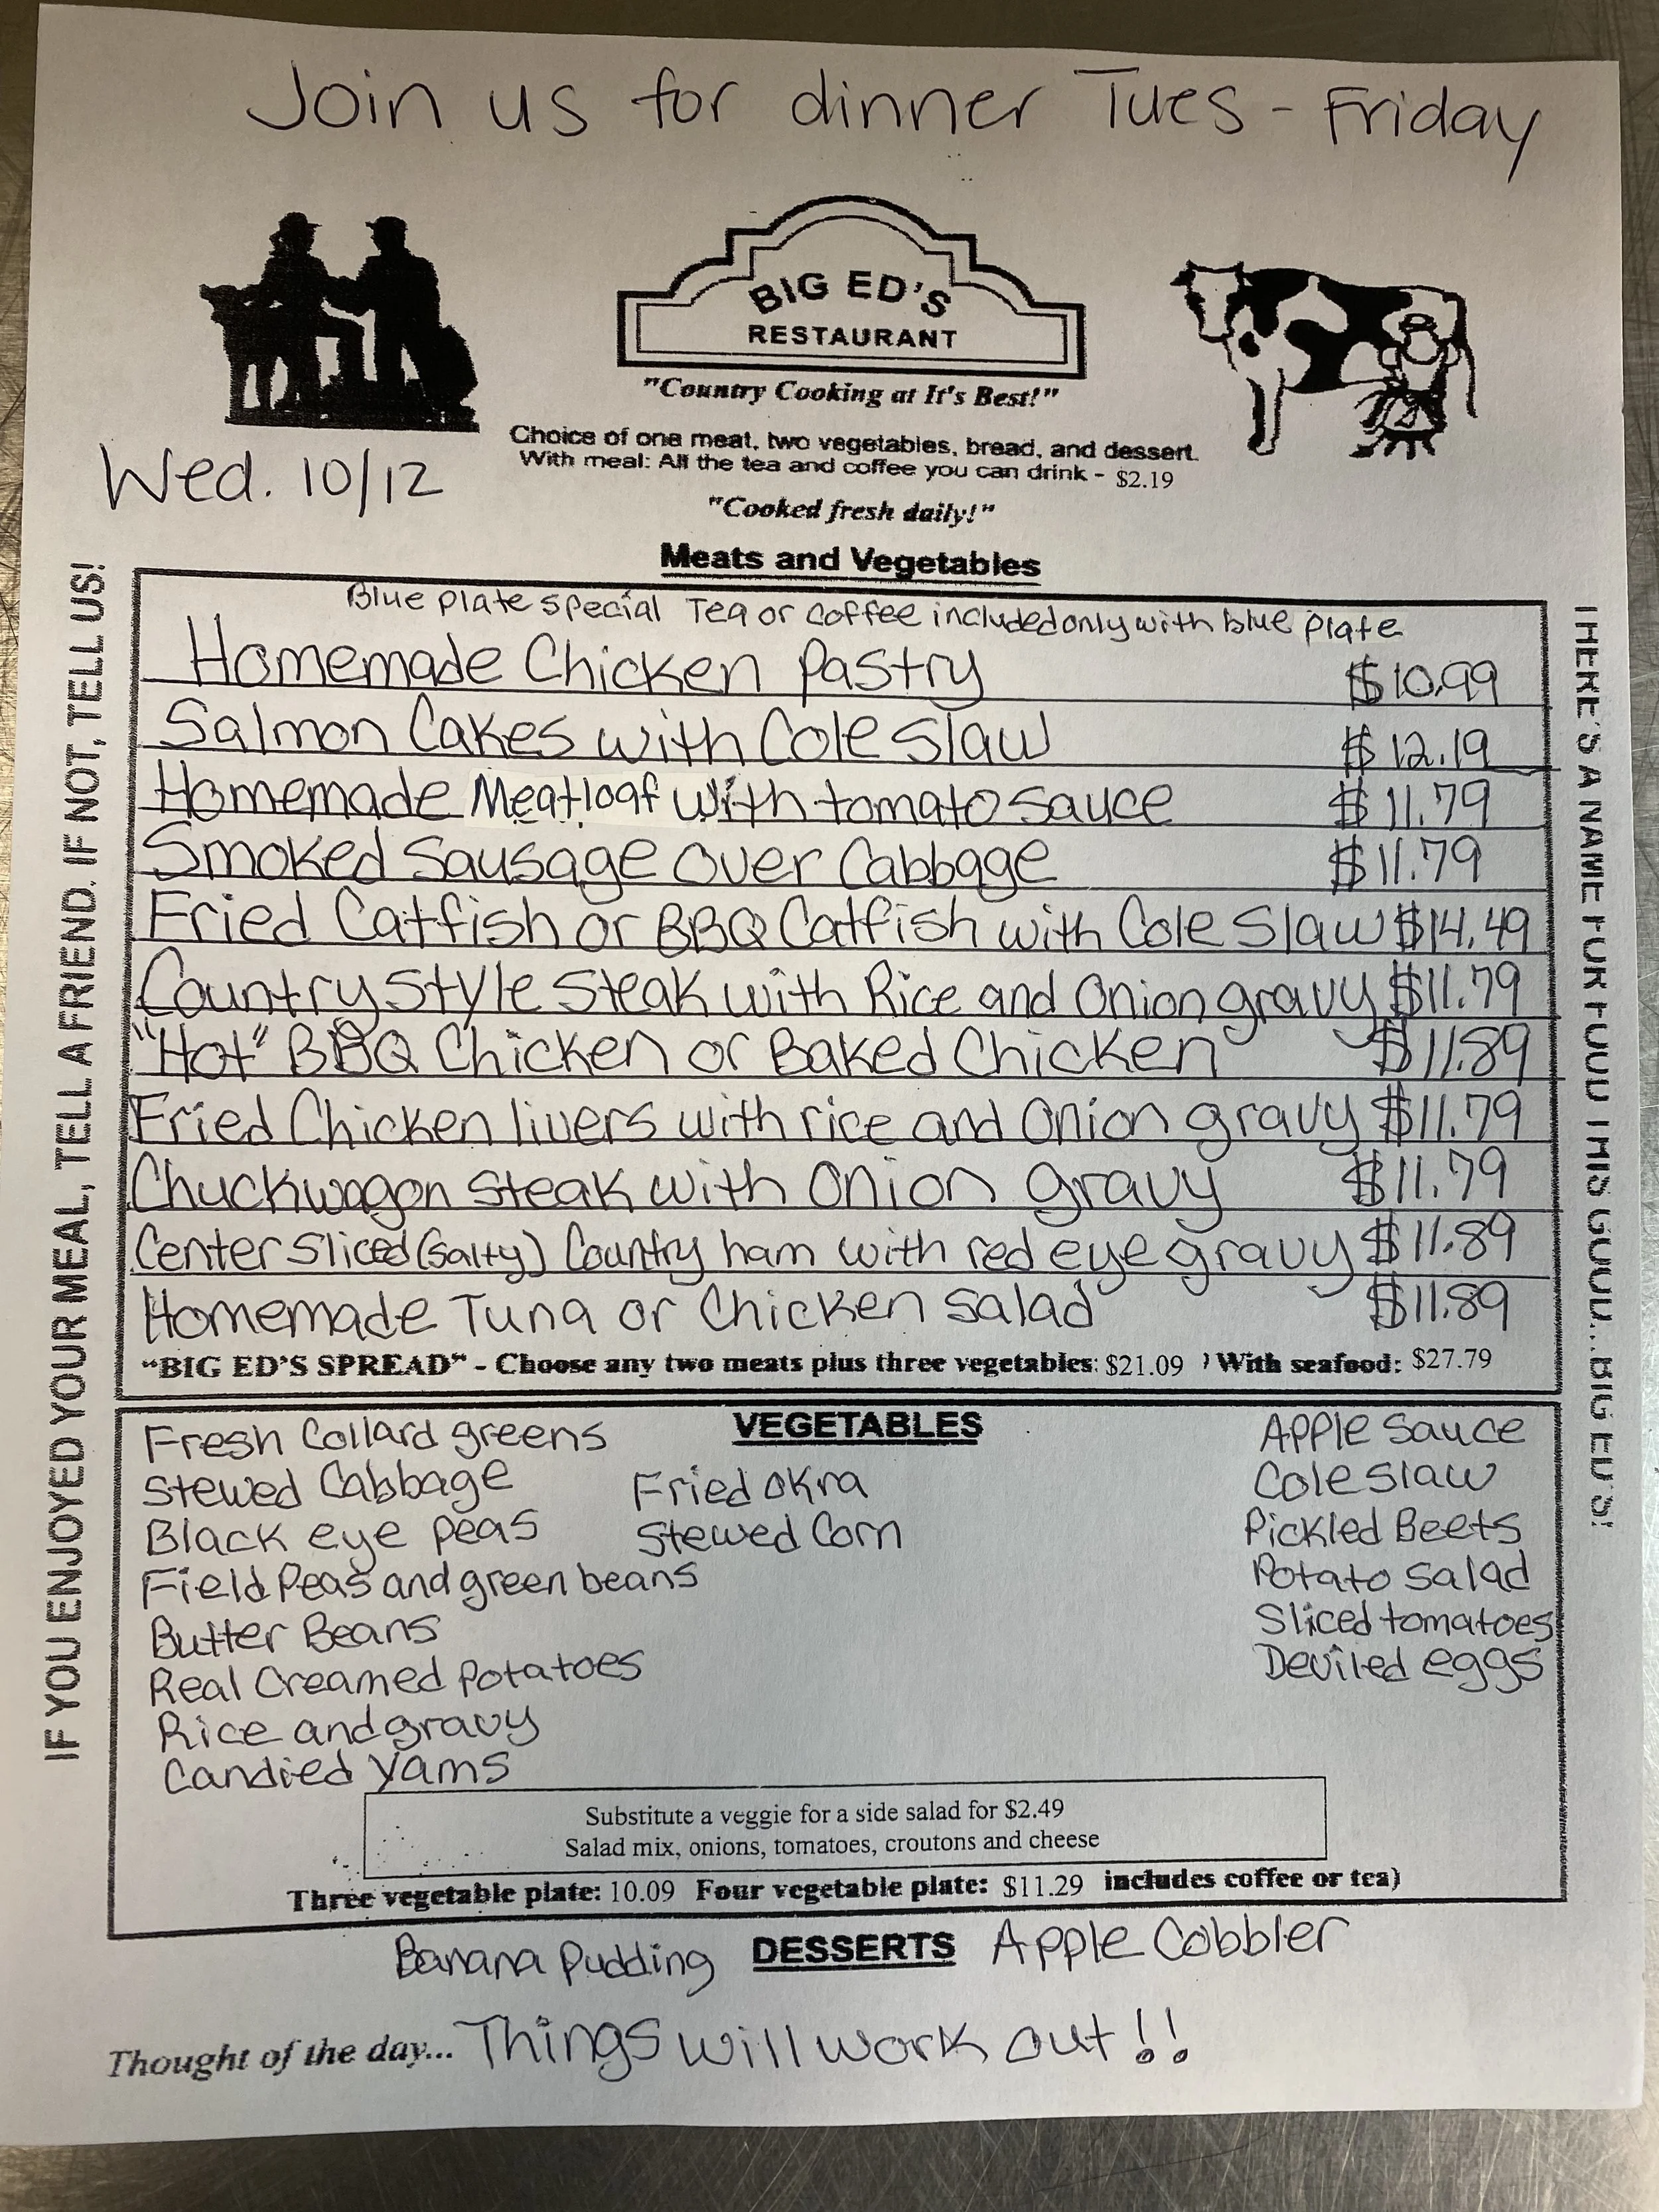 Join us for dinner Tues - Friday
BIG ED'S
RESTAURANT
"Country Cooking at It's Best!"
Choice of one meat, two vegetables, bread, and dessert.
With meal: All the tea and coffee you can drink - $2.19
Wed. 10/12
"Cooked fresh daily!"
Meats and Vegetables
Blue plate special Tea or coffee included only with blue plate
Homemade Chicken Pastry $10.99
Salmon Cakes with Cole slaw $12.19
Homemade Meatloaf with tomato sauce $11.79
Smoked Sausage over Cabbage $11.79
Fried Catfish or BBQ Catfish with Cole slaw $14.49
Country style steak with Rice and Onion gravy $11.79
"Hot" BBQ Chicken or Baked Chicken $11.89
Fried Chicken livers with rice and Onion gravy $11.79
Chuckwagon steak with Onion gravy $11.79
Center sliced (salty) Country ham with red eye gravy $11.89
Homemade Tuna or Chicken salad $11.89
"BIG ED'S SPREAD" - Choose any two meats plus three vegetables: $21.09 ) With seafood: $27.79
IF YOU ENJOYED YOUR MEAL, TELL A FRIEND. IF NOT, TELL US!
THERE'S A NAME FOR FOOD THIS GOOD...BIG ED'S!
VEGETABLES
Fresh Collard greens
Stewed Cabbage
Black eye peas
Field Peas and green beans
Butter Beans
Real Creamed Potatoes
Rice and gravy
Candied Yams
Fried Okra
Stewed Corn
Apple Sauce
Cole slaw
Pickled Beets
Potato salad
Sliced tomatoes
Deviled eggs
Substitute a veggie for a side salad for $2.49
Salad mix, onions, tomatoes, croutons and cheese
Three vegetable plate: 10.09 Four vegetable plate: $11.29 includes coffee or tea)
Banana Pudding DESSERTS Apple Cobbler
Thought of the day... Things will work out!!